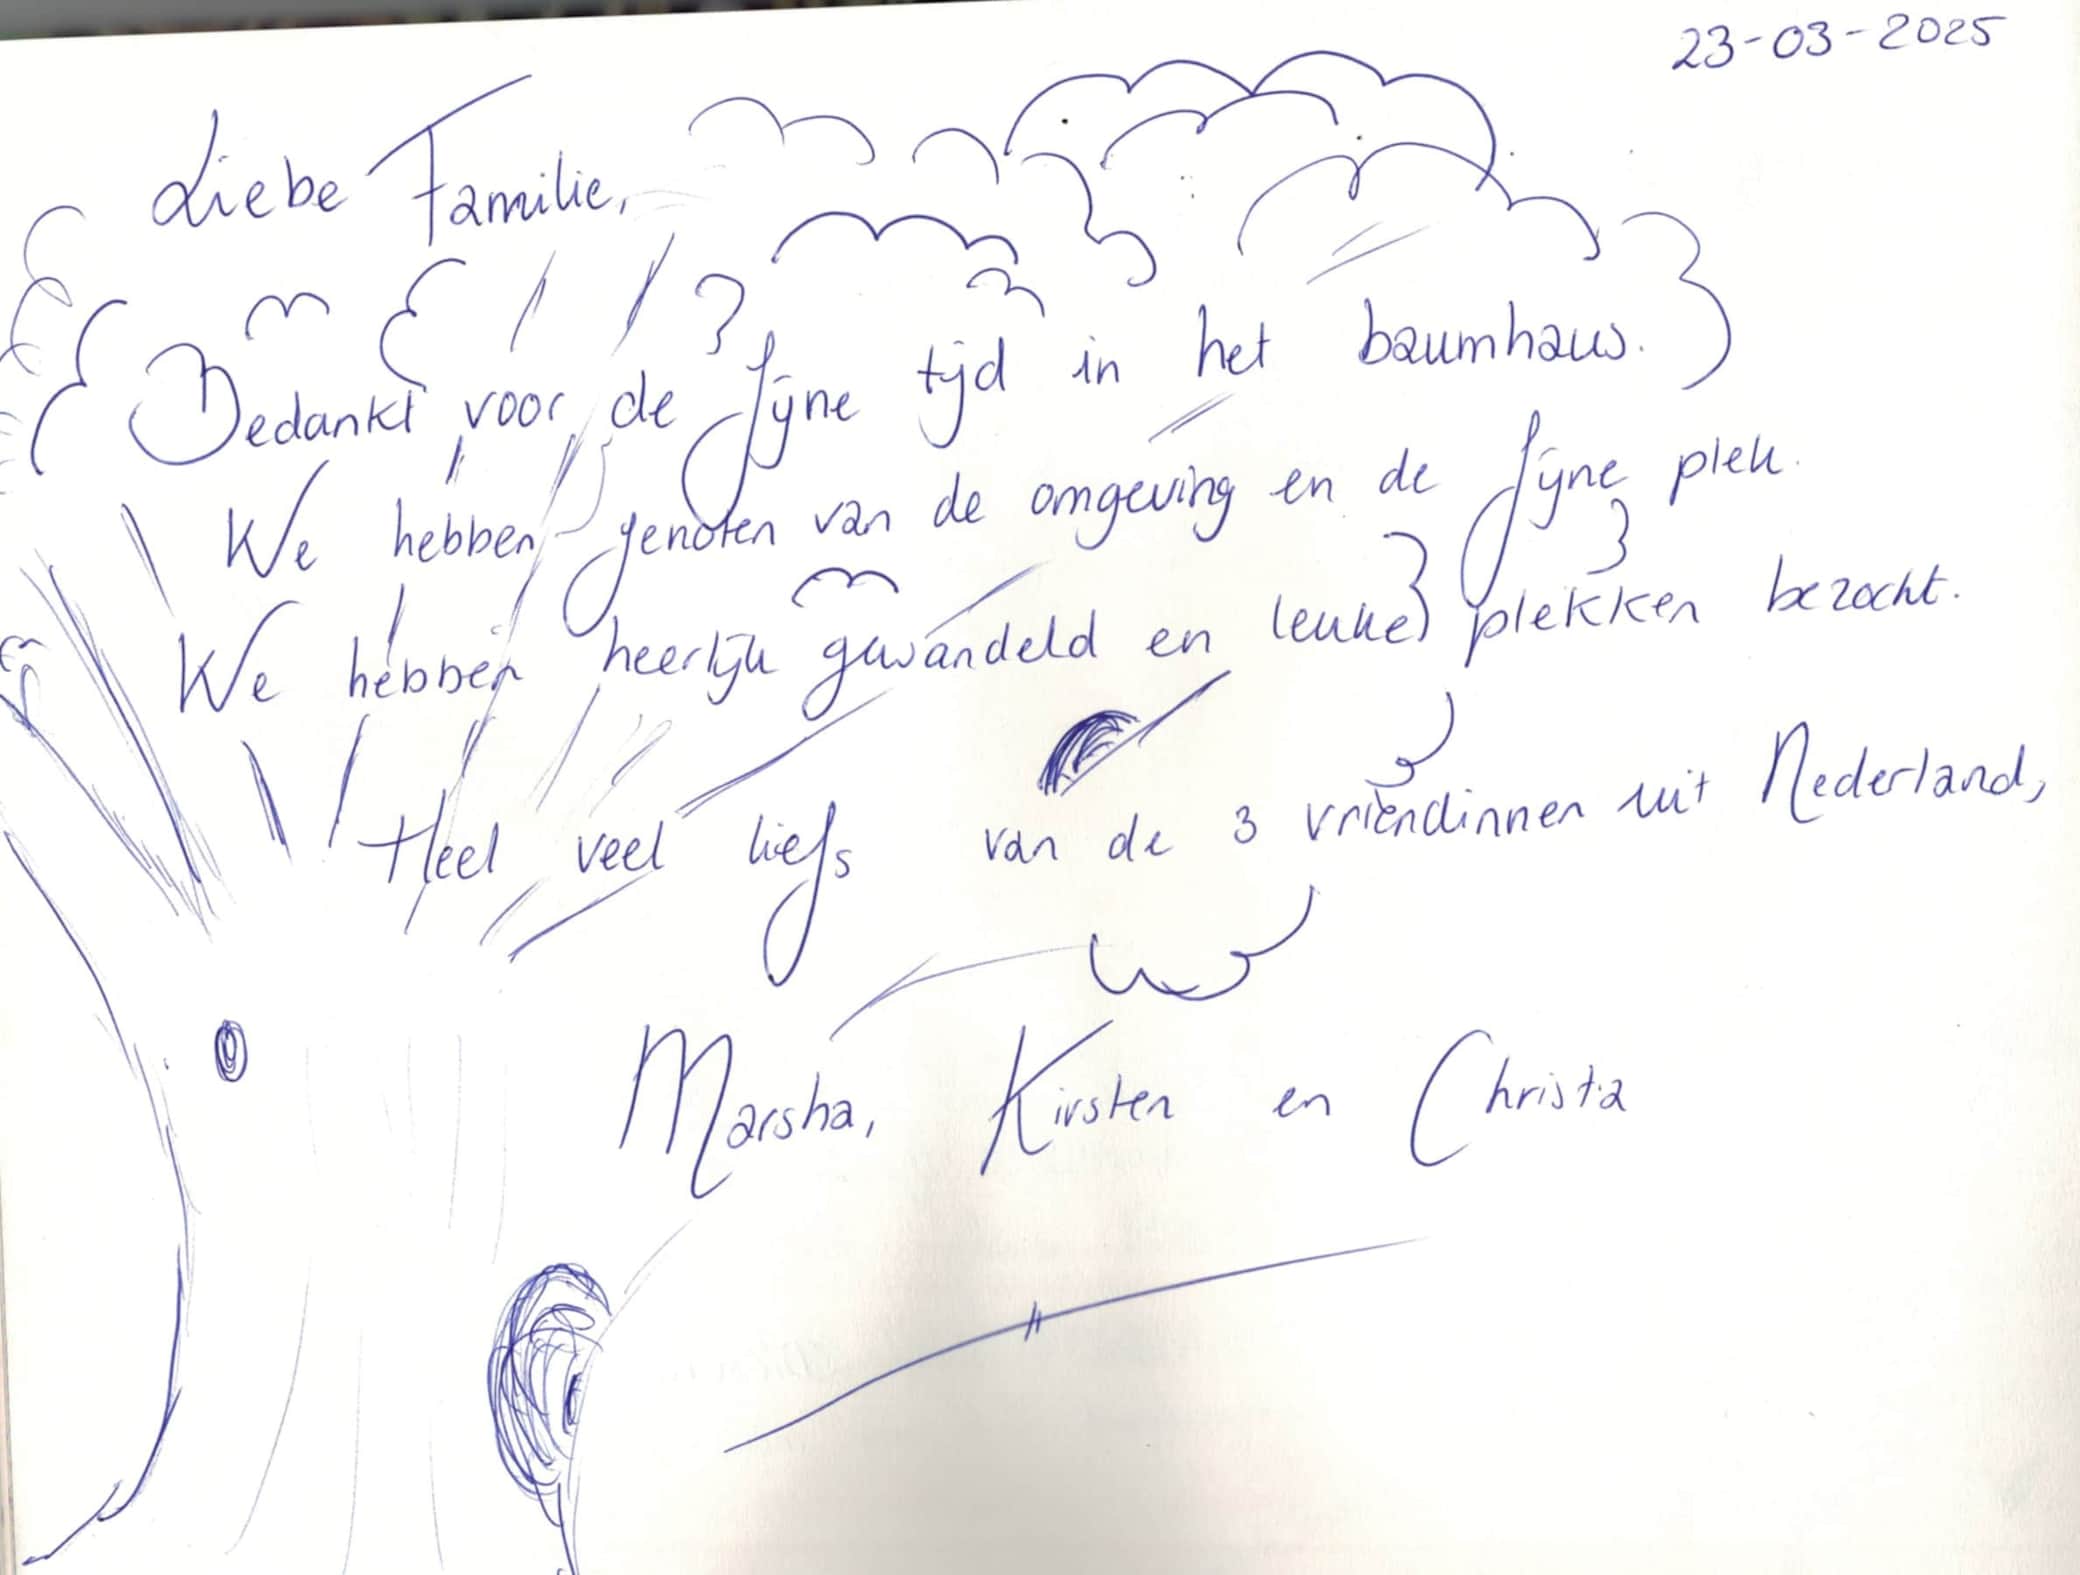 23-03-2025
Liebe Familie,
Bedankt voor de fijne tijd in het baumhaus.
We hebben genoten van de omgeving en de fijne plek.
We hebben heerlijk gewandeld en leuke plekken bezocht.
Heel veel liefs van de 3 vriendinnen uit Nederland,
Marsha, Kirsten en Christa